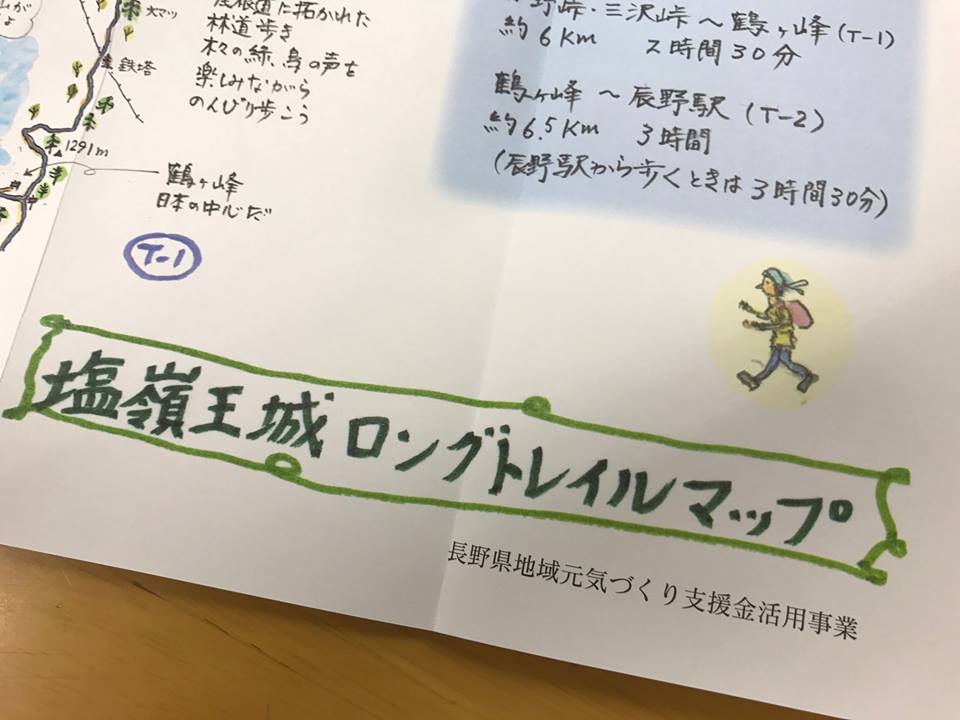 大マツ
鉄塔
1291m
鶴ヶ峰
日本の中心だ
T-1
尾根道に拓かれた
林道歩き
木々の緑、鳥の声を
楽しみながら
のんびり歩こう
峠・三沢峠〜鶴ヶ峰(T-1)
約6Km 2時間30分
鶴ヶ峰 〜 辰野駅 (T-2)
約6.5Km 3時間
(辰野駅から歩くときは3時間30分)
塩嶺王城ロングトレイルマップ
長野県地域元気づくり支援金活用事業